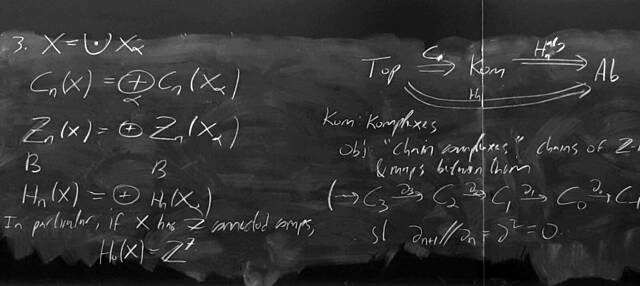 3. X = ⋃· Xα
Cn(X) = ⊕α Cn(Xα)
Zn(X) = ⊕ Zn(Xα)
B B
Hn(X) = ⊕ Hn(Xα)
In particular, if X has Z connected comps,
H0(X) = Z^Z
Top ⇒ Kom ⇒ Ab
C Hn
Hn
Kom: Komplexes
Obj: "Chain complexes" chains of Z-
& maps between them
(→ C3 →∂3 C2 →∂2 C1 →∂1 C0 →∂0 C-1
st ∂n+1 // ∂n = ∂² = 0.